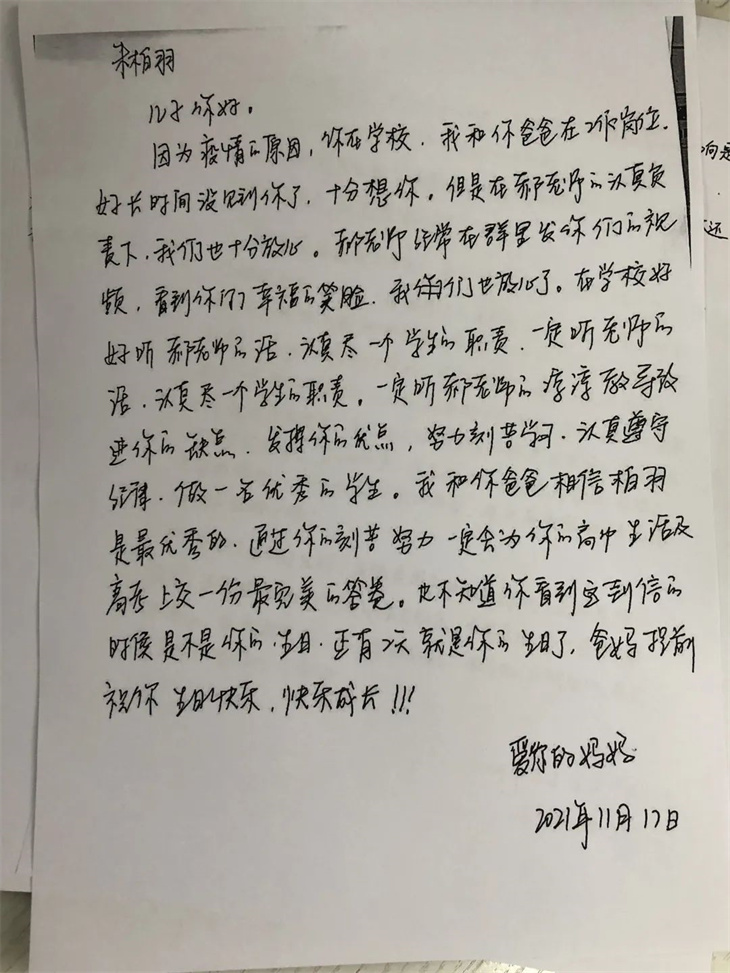 朱柏羽
儿子你好。
因为疫情的原因，你在学校．我和你爸爸在工作岗位．
好长时间没见到你了，十分想你。但是在郝老师的认真负
责下，我们也十分放心。郝老师经常在群里发你们的视
频，看到你们幸福的笑脸．我们也放心了。在学校好
好听郝老师的话．认真尽一个学生的职责．一定听老师的
话．认真尽一个学生的职责。一定听郝老师的谆谆教导改
进你的缺点．发挥你的优点，努力刻苦学习．认真遵守
纪律．做一名优秀的学生。我和你爸爸相信柏羽
是最优秀的．通过你的刻苦努力一定会为你的高中生活及
高考上交一份最完美的答卷。也不知道你看到这封信的
时候是不是你的生日．还有2天就是你的生日了，爸妈提前
祝你生日快乐，快乐成长!!!
爱你的妈妈
2021年11月17日
响是
还